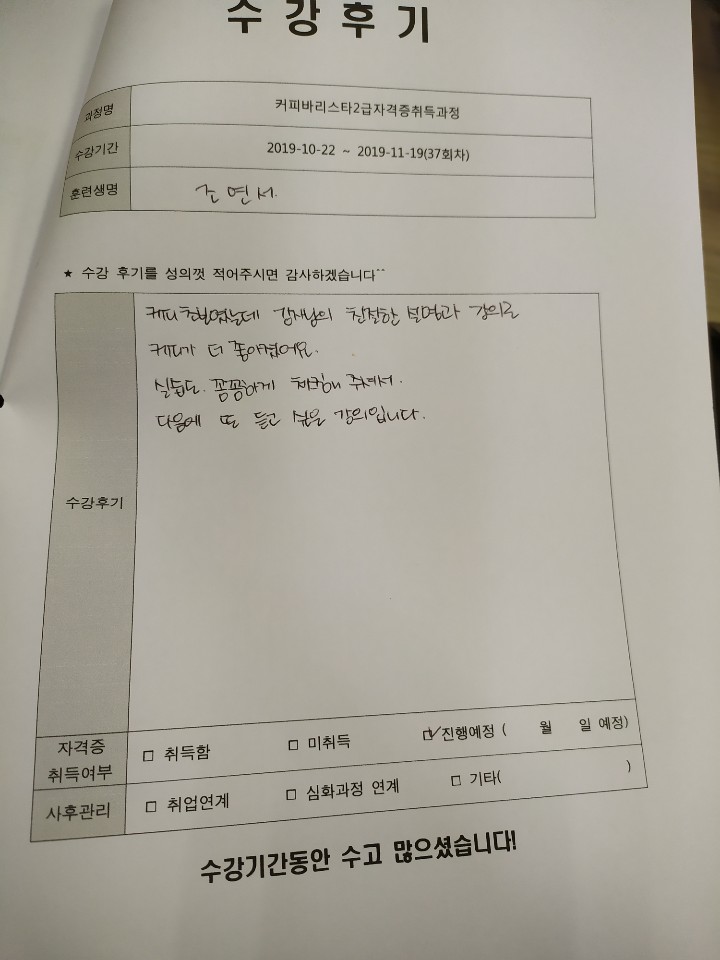 수강후기
과정명 커피바리스타2급자격증취득과정
수강기간 2019-10-22 ~ 2019-11-19(37회차)
훈련생명 조연서.
★ 수강 후기를 성의껏 적어주시면 감사하겠습니다^^
커피초보였는데 강사님의 친절한 설명과 강의로
커피가 더 좋아졌어요.
실습도 꼼꼼하게 체킹해 주셔서.
다음에 또 듣고 싶은 강의입니다.
수강후기
자격증 취득여부 □ 취득함 □ 미취득 ☑ 진행예정 ( 월 일 예정)
사후관리 □ 취업연계 □ 심화과정 연계 □ 기타( )
수강기간동안 수고 많으셨습니다!